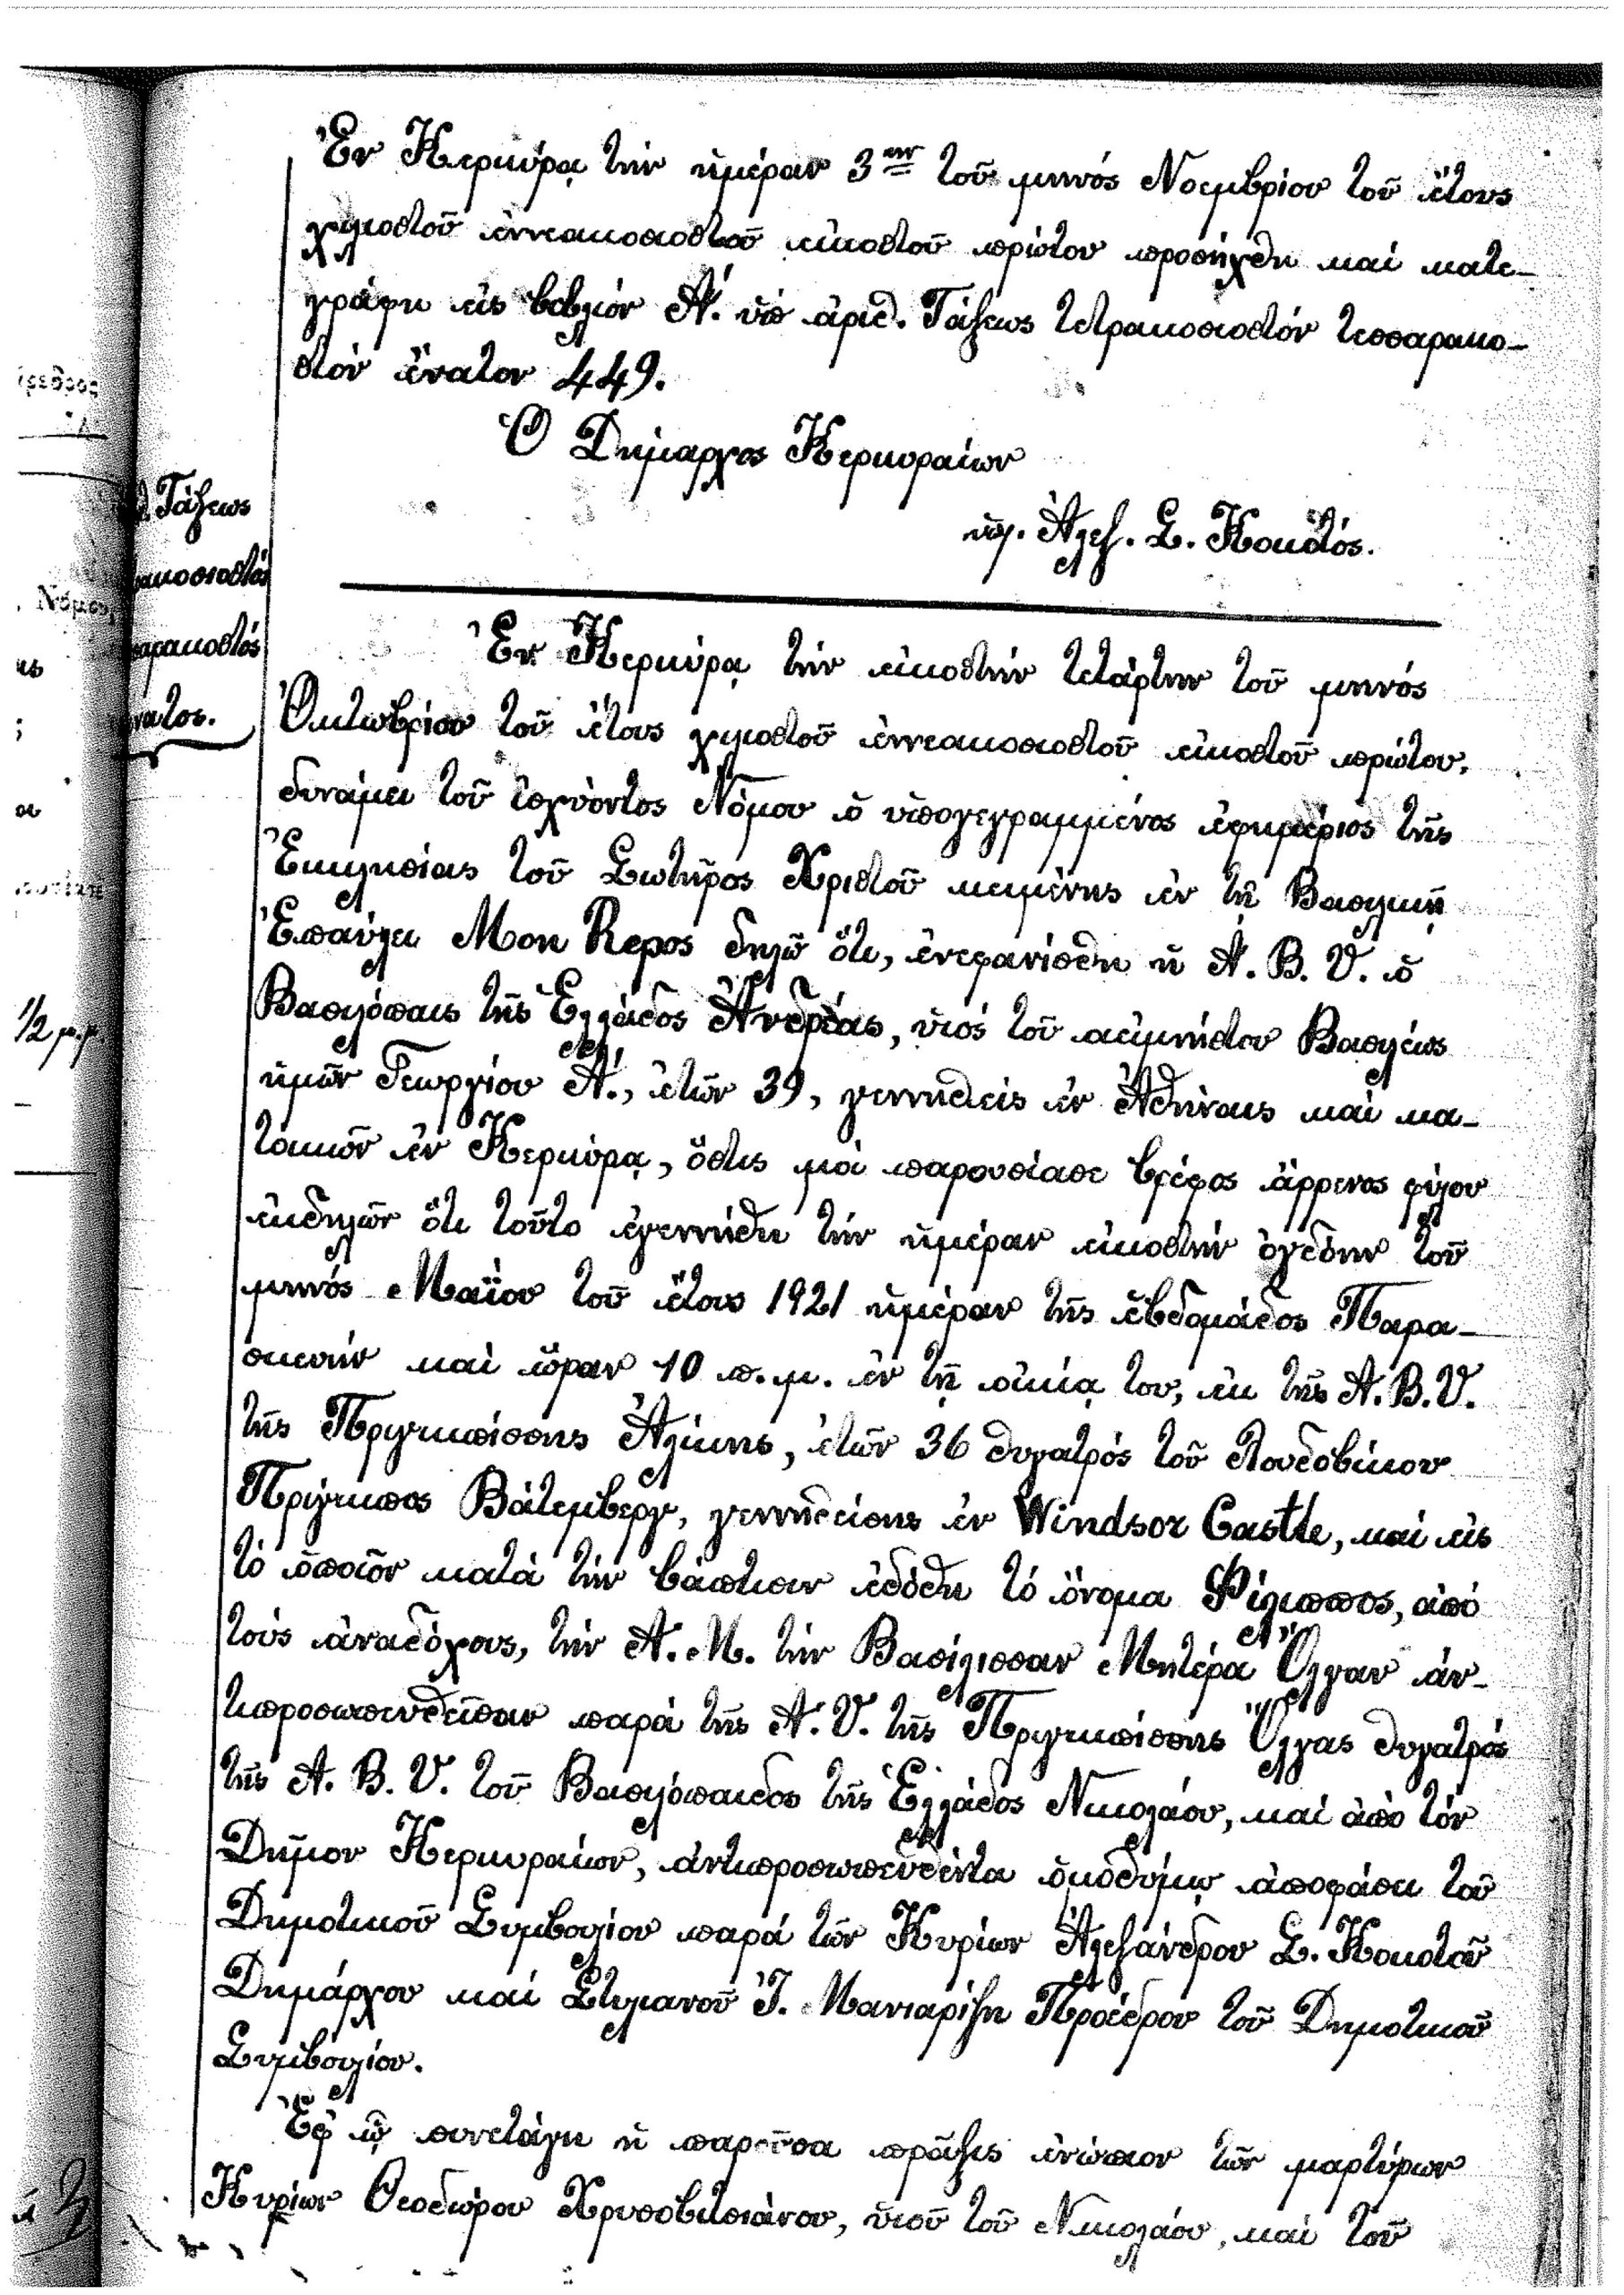 Ἐν Κερκύρᾳ τὴν ἡμέραν 3ην τοῦ μηνός Νοεμβρίου τοῦ ἔτους
χιλιοστοῦ ἐννεακοσιοστοῦ εἰκοστοῦ πρώτου προσήχθη καί κατε-
γράφη εἰς βιβλίον Α΄. ὑπ ἀριθ. Τάξεως τετρακοσιοστόν τεσσαρακο-
στόν ἔνατον 449.
Ὁ Δήμαρχος Κερκυραίων
ὑπ. Ἀλεξ. Σ. Κοκοτός.
Τάξεως
ακοσιοστός
αρακοστός
νατος.
Νόμου
1/2 μ.μ.
Ἐν Κερκύρᾳ τὴν εἰκοστήν τετάρτην τοῦ μηνός
Ὀκτωβρίου τοῦ ἔτους χιλιοστοῦ ἐννεακοσιοστοῦ εἰκοστοῦ πρώτου,
δυνάμει τοῦ ἰσχύοντος Νόμου ὁ ὑπογεγραμμένος ἐφημέριος τῆς
Ἐκκλησίας τοῦ Σωτῆρος Χριστοῦ κειμένης ἐν τῇ Βασιλικῇ
Ἐπαύλει Mon Repos δηλῶ ὅτι, ἐνεφανίσθη ἡ Α. Β. Υ. ὁ
Βασιλόπαις τῆς Ἑλλάδος Ἀνδρέας, υἱός τοῦ αειμνήστου Βασιλέως
ἡμῶν Γεωργίου Α΄., ἐτῶν 39, γεννηθείς ἐν Ἀθήναις καί κα-
τοικῶν ἐν Κερκύρᾳ, ὅστις μοί παρουσίασε βρέφος ἄρρενος φύλου
ἐκδηλῶν ὅτι τοῦτο ἐγεννήθη τήν ἡμέραν εἰκοστήν ὀγδόην τοῦ
μηνός Μαΐου τοῦ ἔτους 1921 ἡμέραν τῆς ἑβδομάδος Παρα-
σκευήν καί ὥραν 10 π.μ. ἐν τῇ οἰκίᾳ του, ἐκ τῆς Α. Β. Υ.
τῆς Πριγκιπίσσης Ἀλίκης, ἐτῶν 36 θυγατρός τοῦ Λουδοβίκου
Πρίγκιπος Βάτεμβεργ, γεννηθείσης ἐν Windsor Castle, καί εἰς
τό ὁποῖον κατά τήν βάπτισιν ἐδόθη τό ὄνομα Φίλιππος, ἀπό
τούς ἀναδόχους, τήν Α. Μ. τήν Βασίλισσαν Μητέρα Ὄλγαν ἀν-
τιπροσωπευθεῖσαν παρά τῆς Α. Υ. τῆς Πριγκιπίσσης Ὄλγας θυγατρός
τῆς Α. Β. Υ. τοῦ Βασιλόπαιδος τῆς Ἑλλάδος Νικολάου, καί ἀπό τόν
Δῆμον Κερκυραίων, ἀντιπροσωπευθέντα ὁμοθύμῳ ἀποφάσει τοῦ
Δημοτικοῦ Συμβουλίου παρά τῶν Κυρίων Ἀλεξάνδρου Σ. Κοκοτοῦ
Δημάρχου καί Στυλιανοῦ Ἰ. Μανιαρίζη Προέδρου τοῦ Δημοτικοῦ
Συμβουλίου.
Ἐφ ᾧ συνετάγη ἡ παροῦσα πρᾶξις ἐνώπιον τῶν μαρτύρων
Κυρίων Θεοδώρου Χρυσοβιτσιάνου, υἱοῦ τοῦ Νικολάου, καί τοῦ